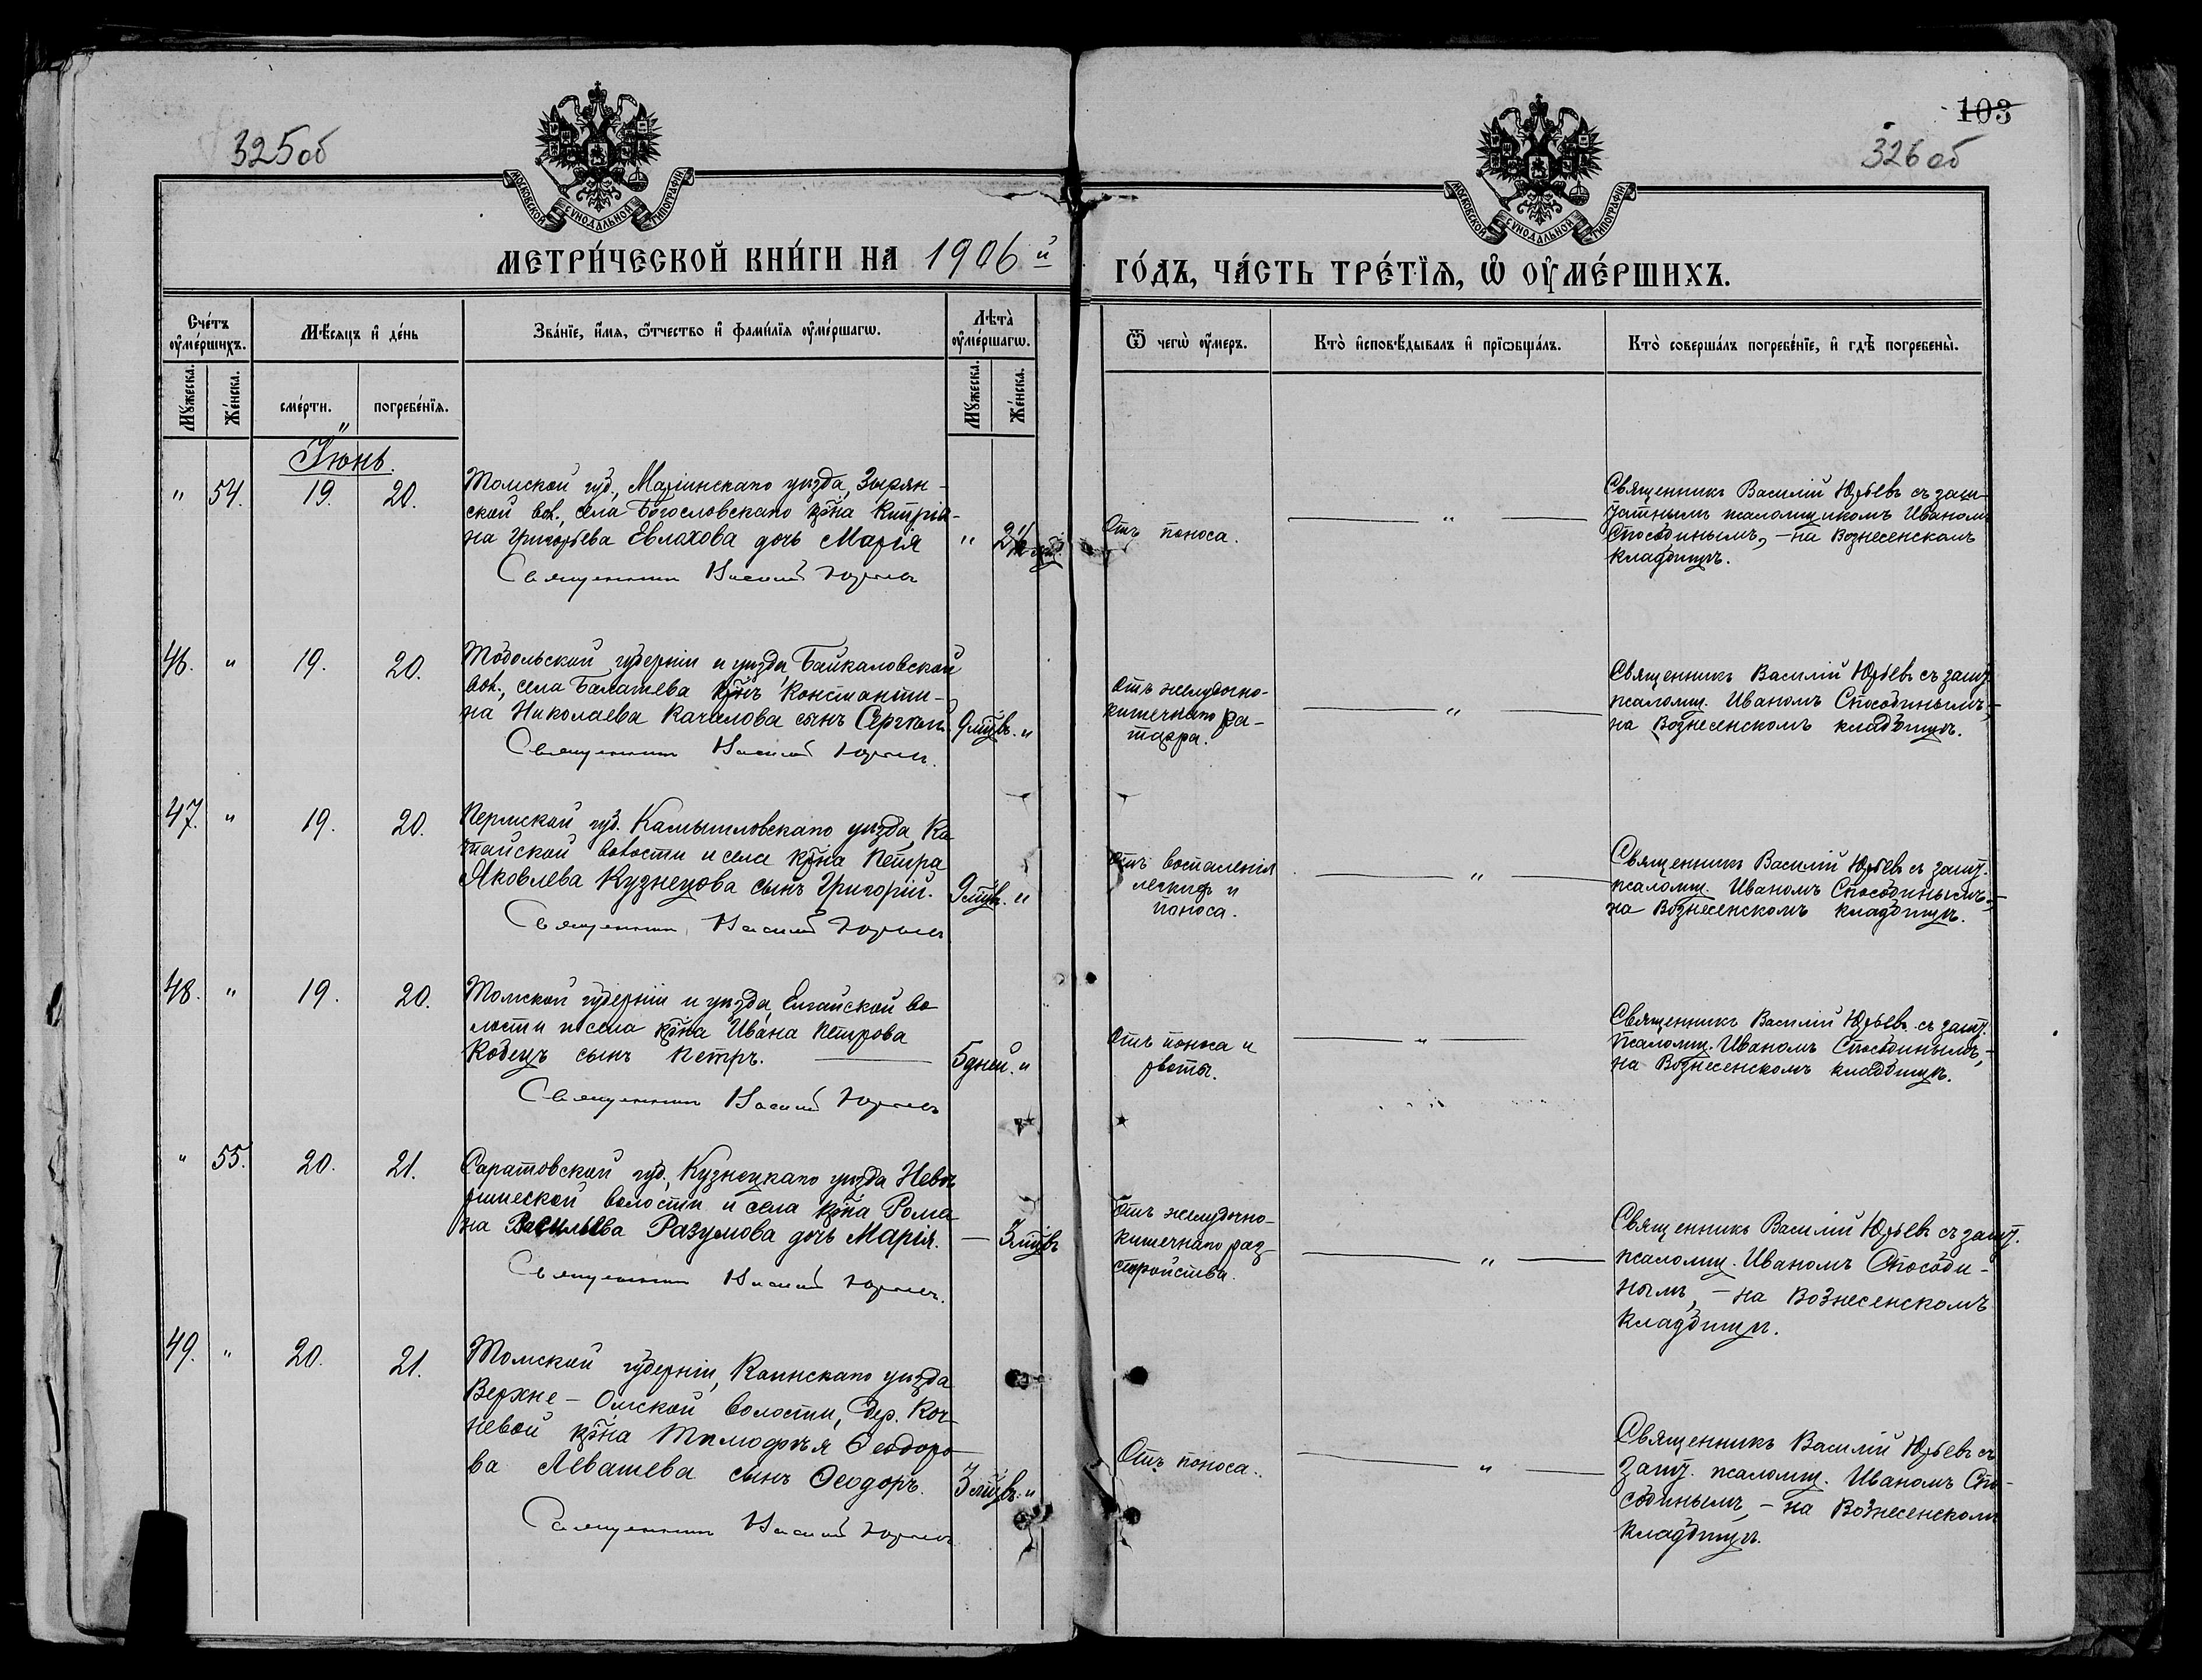 325 об
103
326 об
МОСКОВСКОЙ СѴНОДАЛЬНОЙ ТИПОГРАФІИ
МОСКОВСКОЙ СѴНОДАЛЬНОЙ ТИПОГРАФІИ
МЕТРИ́ЧЕСКОЙ КНИ́ГИ НА 1906 й
ГО́ДЪ, ЧА́СТЬ ТРЕ́ТЇѦ, Ѡ҆ ОУ҆МЕ́РШИХЪ.
Сче́тъ оу҆ме́ршихъ.
Мѣ́сяцъ и҆ де́нь
Зва́нїе, и҆́мя, ѻ҆́тчество и҆ фами́лїя оу҆ме́ршагѡ.
Лѣта̀ оу҆ме́ршагѡ.
Ѿ чегѡ̀ оу҆́меръ.
Кто̀ и҆сповѣ́дывалъ и҆ прїѡбща́лъ.
Кто̀ соверша́лъ погребе́нїе, и҆ гдѣ̀ погребены̀.
Мꙋ́жеска.
Же́нска.
сме́рти.
погребе́нїя.
Мꙋ́жеска.
Же́нска.
Іюнь.
" 54. 19. 20.
Томской губ., Маріинскаго уѣзда, Зырян-
ской вол., села Богословскаго кр̃на Кипріа-
на Григорьева Евлахова дочь Марія
Священникъ Василій Юрьевъ
"
Отъ поноса.
"
Священникъ Василій Юрьевъ съ заш-
татнымъ псаломщикомъ Иваномъ
Способинымъ, - на Вознесенскомъ
кладбищѣ.
46. " 19. 20.
Тобольской губерніи и уѣзда, Байкаловской
вол., села Балашева кр̃нъ Константи-
на Николаева Качалова сынъ Сергѣй.
Священникъ Василій Юрьевъ.
9 мцв. "
Отъ желудочно-
кишечнаго ка-
тарра.
"
Священникъ Василій Юрьевъ съ зашт.
псаломщ. Иваномъ Способинымъ, -
на Вознесенскомъ кладбищѣ.
47. " 19. 20.
Пермской губ. Камышловскаго уѣзда, Ка-
тайской волости и села кр̃на Петра
Яковлева Кузнецова сынъ Григорій.
Священникъ Василій Юрьевъ
9 мцв. "
Отъ воспаленія
легкихъ и
поноса.
"
Священникъ Василій Юрьевъ съ зашт.
псаломщ. Иваномъ Способинымъ, -
на Вознесенскомъ кладбищѣ.
48. " 19. 20.
Томской губерніи и уѣзда, Елгайской во-
лости и села кр̃на Ивана Петрова
Кодецъ сынъ Петръ.
Священникъ Василій Юрьевъ
5 дней. "
Отъ поноса и
рвоты.
"
Священникъ Василій Юрьевъ съ зашт.
псаломщ. Иваномъ Способинымъ, -
на Вознесенскомъ кладбищѣ.
" 55. 20. 21.
Саратовской губ., Кузнецкаго уѣзда
волости и села кр̃на Рома
на Васильева Разумова дочь Марія.
Священникъ Василій Юрьевъ.
— 3 мцвъ
Отъ желудочно-
кишечнаго раз-
стройства.
"
Священникъ Василій Юрьевъ съ зашт.
псаломщ. Иваномъ Способи-
нымъ, - на Вознесенскомъ
кладбищѣ.
49. " 20. 21.
Томской губерніи, Каинскаго уѣзда
Верхне-Омской волости, дер. Коч-
невой кр̃на Тимофѣя Ѳеодоро-
ва Левашева сынъ Ѳеодоръ.
Священникъ Василій Юрьевъ
3 мцвъ. "
Отъ поноса.
"
Священникъ Василій Юрьевъ съ
зашт. псаломщ. Иваномъ Спо-
собинымъ, - на Вознесенскомъ
кладбищѣ.